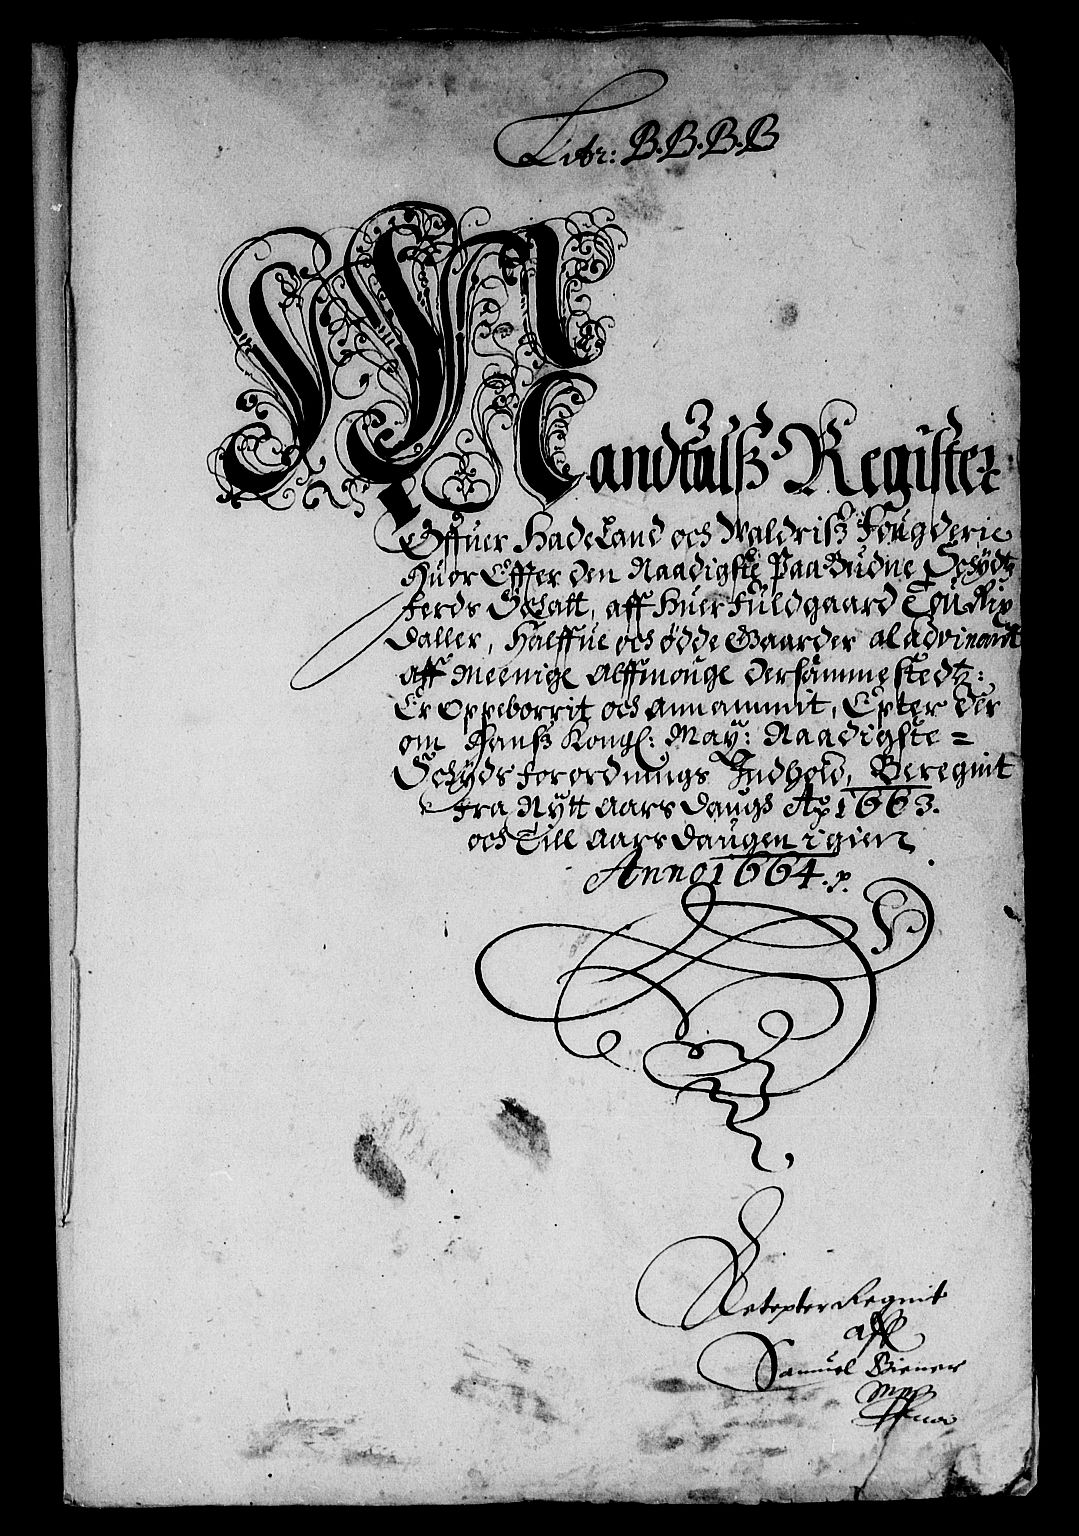 Litr: B.B.B.B
Mandtalsß Register
Offuer Hadeland och Waldriß Fougderie
Huor Effter den Naadigste Paabudne Schÿdtz
ferds Schatt, aff Huer fuldgaard Tou Rix
daller, Halffue och ødde Gaarder al advinant
aff Meenige Alffmouge dersamme stedtz:
Er Oppeborrit och Annammit, Epter der
om Hanß Kongl: May: Naadigste =
Schÿds forordnings Indhold, Beregnit
fra Nÿtt Aars daugs Ao 1663.
och Till Aars daugen igien
Anno 1664. p.
aff
Samuel Biener
Mpp